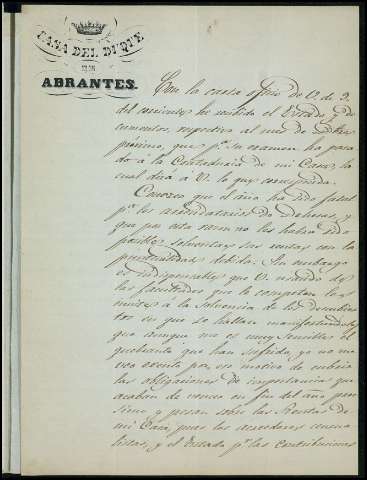 CASA DEL DUQUE
DE
ABRANTES.
Con la carta oficio de V. de 9.
del corriente he recibido el Estado y do-
cumentos respectivos al mes de
próximo, que pª su examen he pasa-
do á la Contaduría de mi Casa, la
cual dirá á V. lo que corresponda.
Conozco que el año ha sido fatal
pª los arrendatarios de Dehesas, y
que por esta razon no les habrá sido
posible solventar sus rentas con la
puntualidad debida. Sin embargo
es indispensable que V. usando de
las facultades que le competen les
mueva á la solvencia de los descubier-
tos en que se hallan manifestandoles
que aunque me es muy sensible el
quebranto que han sufrido, yo no me
veo exento por ese motivo de cubrir
las obligaciones de importancia que
acaban de vencer en fin del año pro-
simo y pesan sobre las Rentas de
mi Casa, pues los acreedores censua-
listas, y el Estado pr. las contribuciones